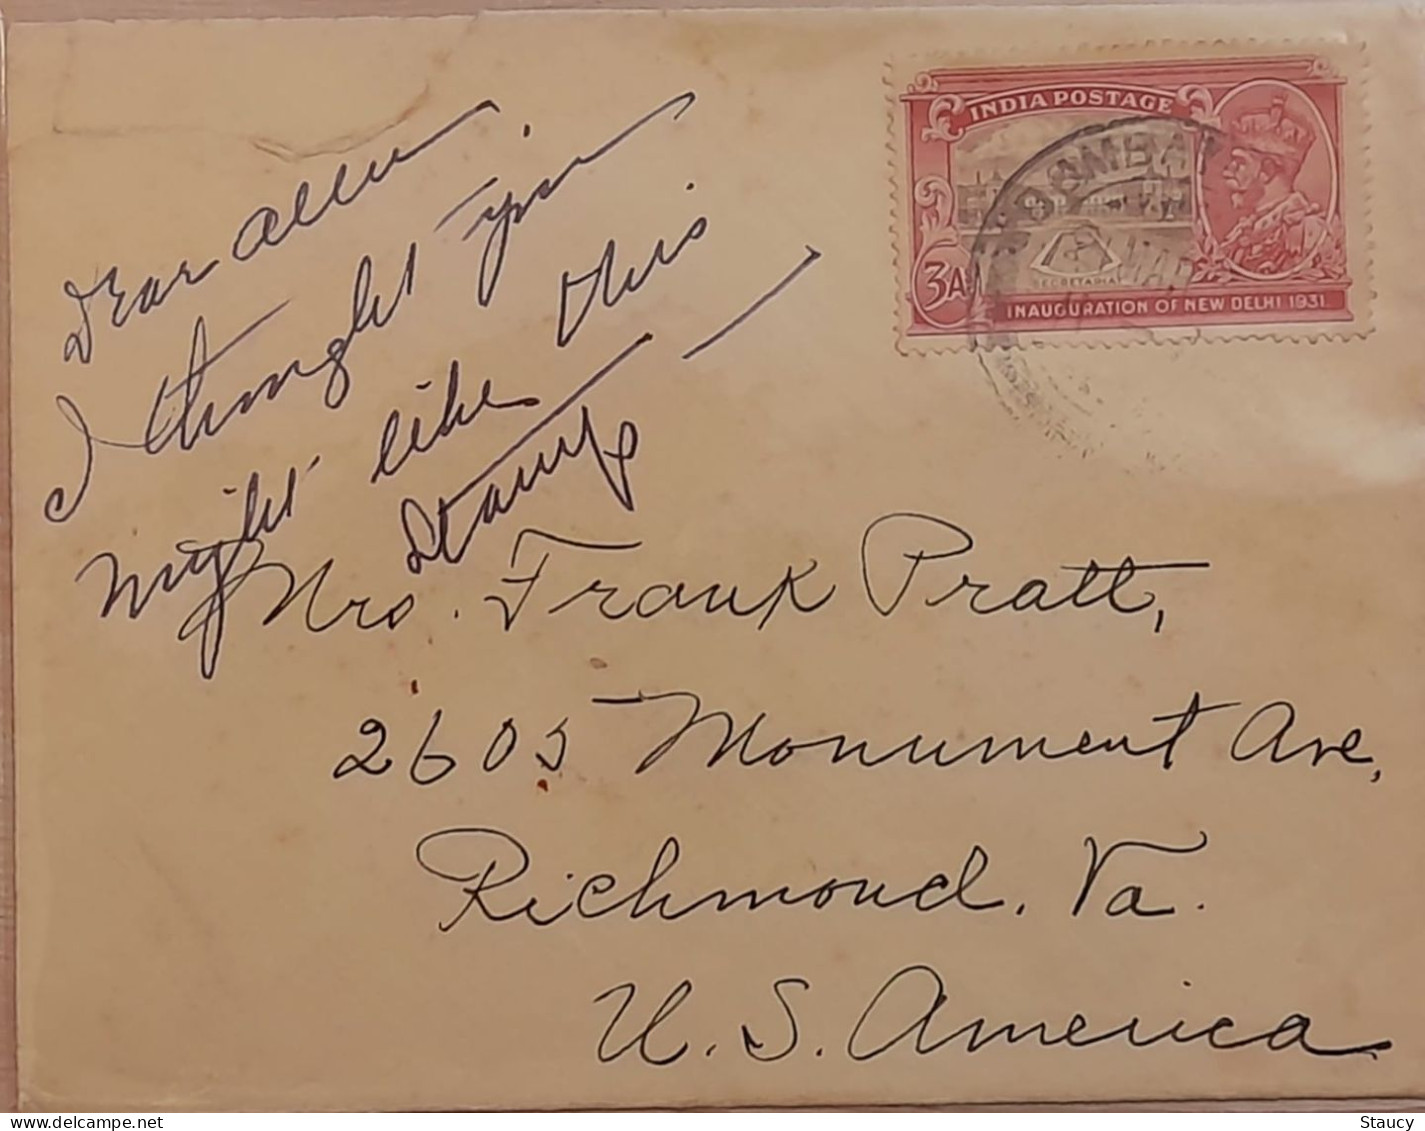 Dear Allen
I thought you
might like this
stamp
INDIA POSTAGE
BOMBAY
MAR
3A
SECRETARIAT
INAUGURATION OF NEW DELHI 1931.
Mrs. Frank Pratt,
2605 Monument Ave,
Richmond, Va.
U. S. America
Staucy